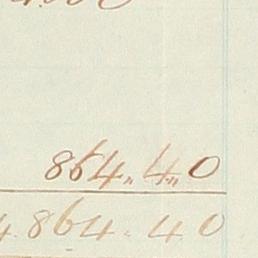 864.,4.,0
4.864.40